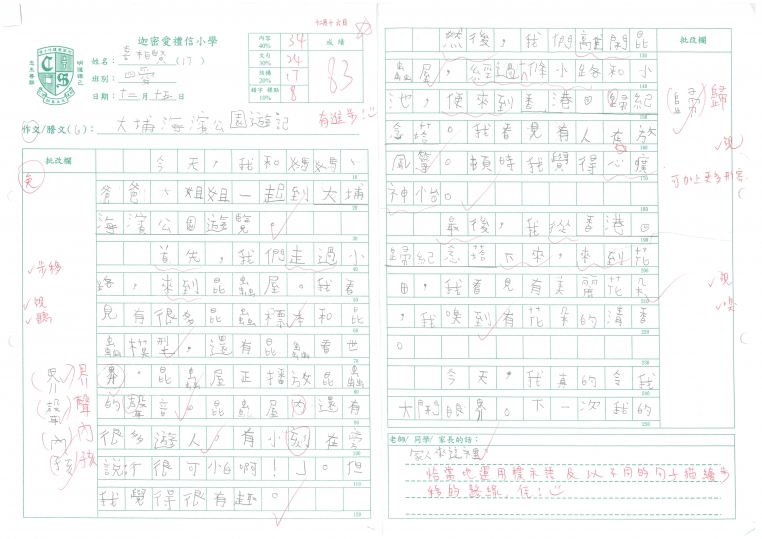 十二月十六日
迦密愛禮信小學
姓名： (17)
班別： 四愛
日期：十二月十五日
內容 40% 34
文句 30% 24
結構 20% 17
錯字 標點 10% 8
成績
83
作文/謄文(6)： 大埔海濱公園遊記
有進步!
批改欄
今天，我和媽媽、
爸爸、姐姐一起到大埔
海濱公園遊覽。
首先，我們走過小
路，來到昆蟲屋。我看
見有很多昆蟲標本和昆
蟲模型，還有昆蟲看世
界。昆蟲屋正播放昆蟲
的聲音。昆蟲屋內還有
很多遊人，有小刻在旁
說「很可怕啊！」。但
我覺得很有趣。
步移
視
聽
界
聲
內
孩
批改欄
然後，我們離開昆
蟲屋，經過條小路和小
池，便來到香港回歸紀
念塔。我看見有人在放
風箏。頓時我覺得心曠
神怡。
最後，我從香港回
歸紀念塔下來，來到花
田，我看見有美麗花朵
，我嗅到有花朵的清香
。
今天，我真的令我
大開眼界。下一次我的
家人來這裡
歸
視
可加上更多形容
視
嗅
老師/ 同學/ 家長的話：
恰當地運用標示語及以不同的句子描繪步
移的路線，佳!